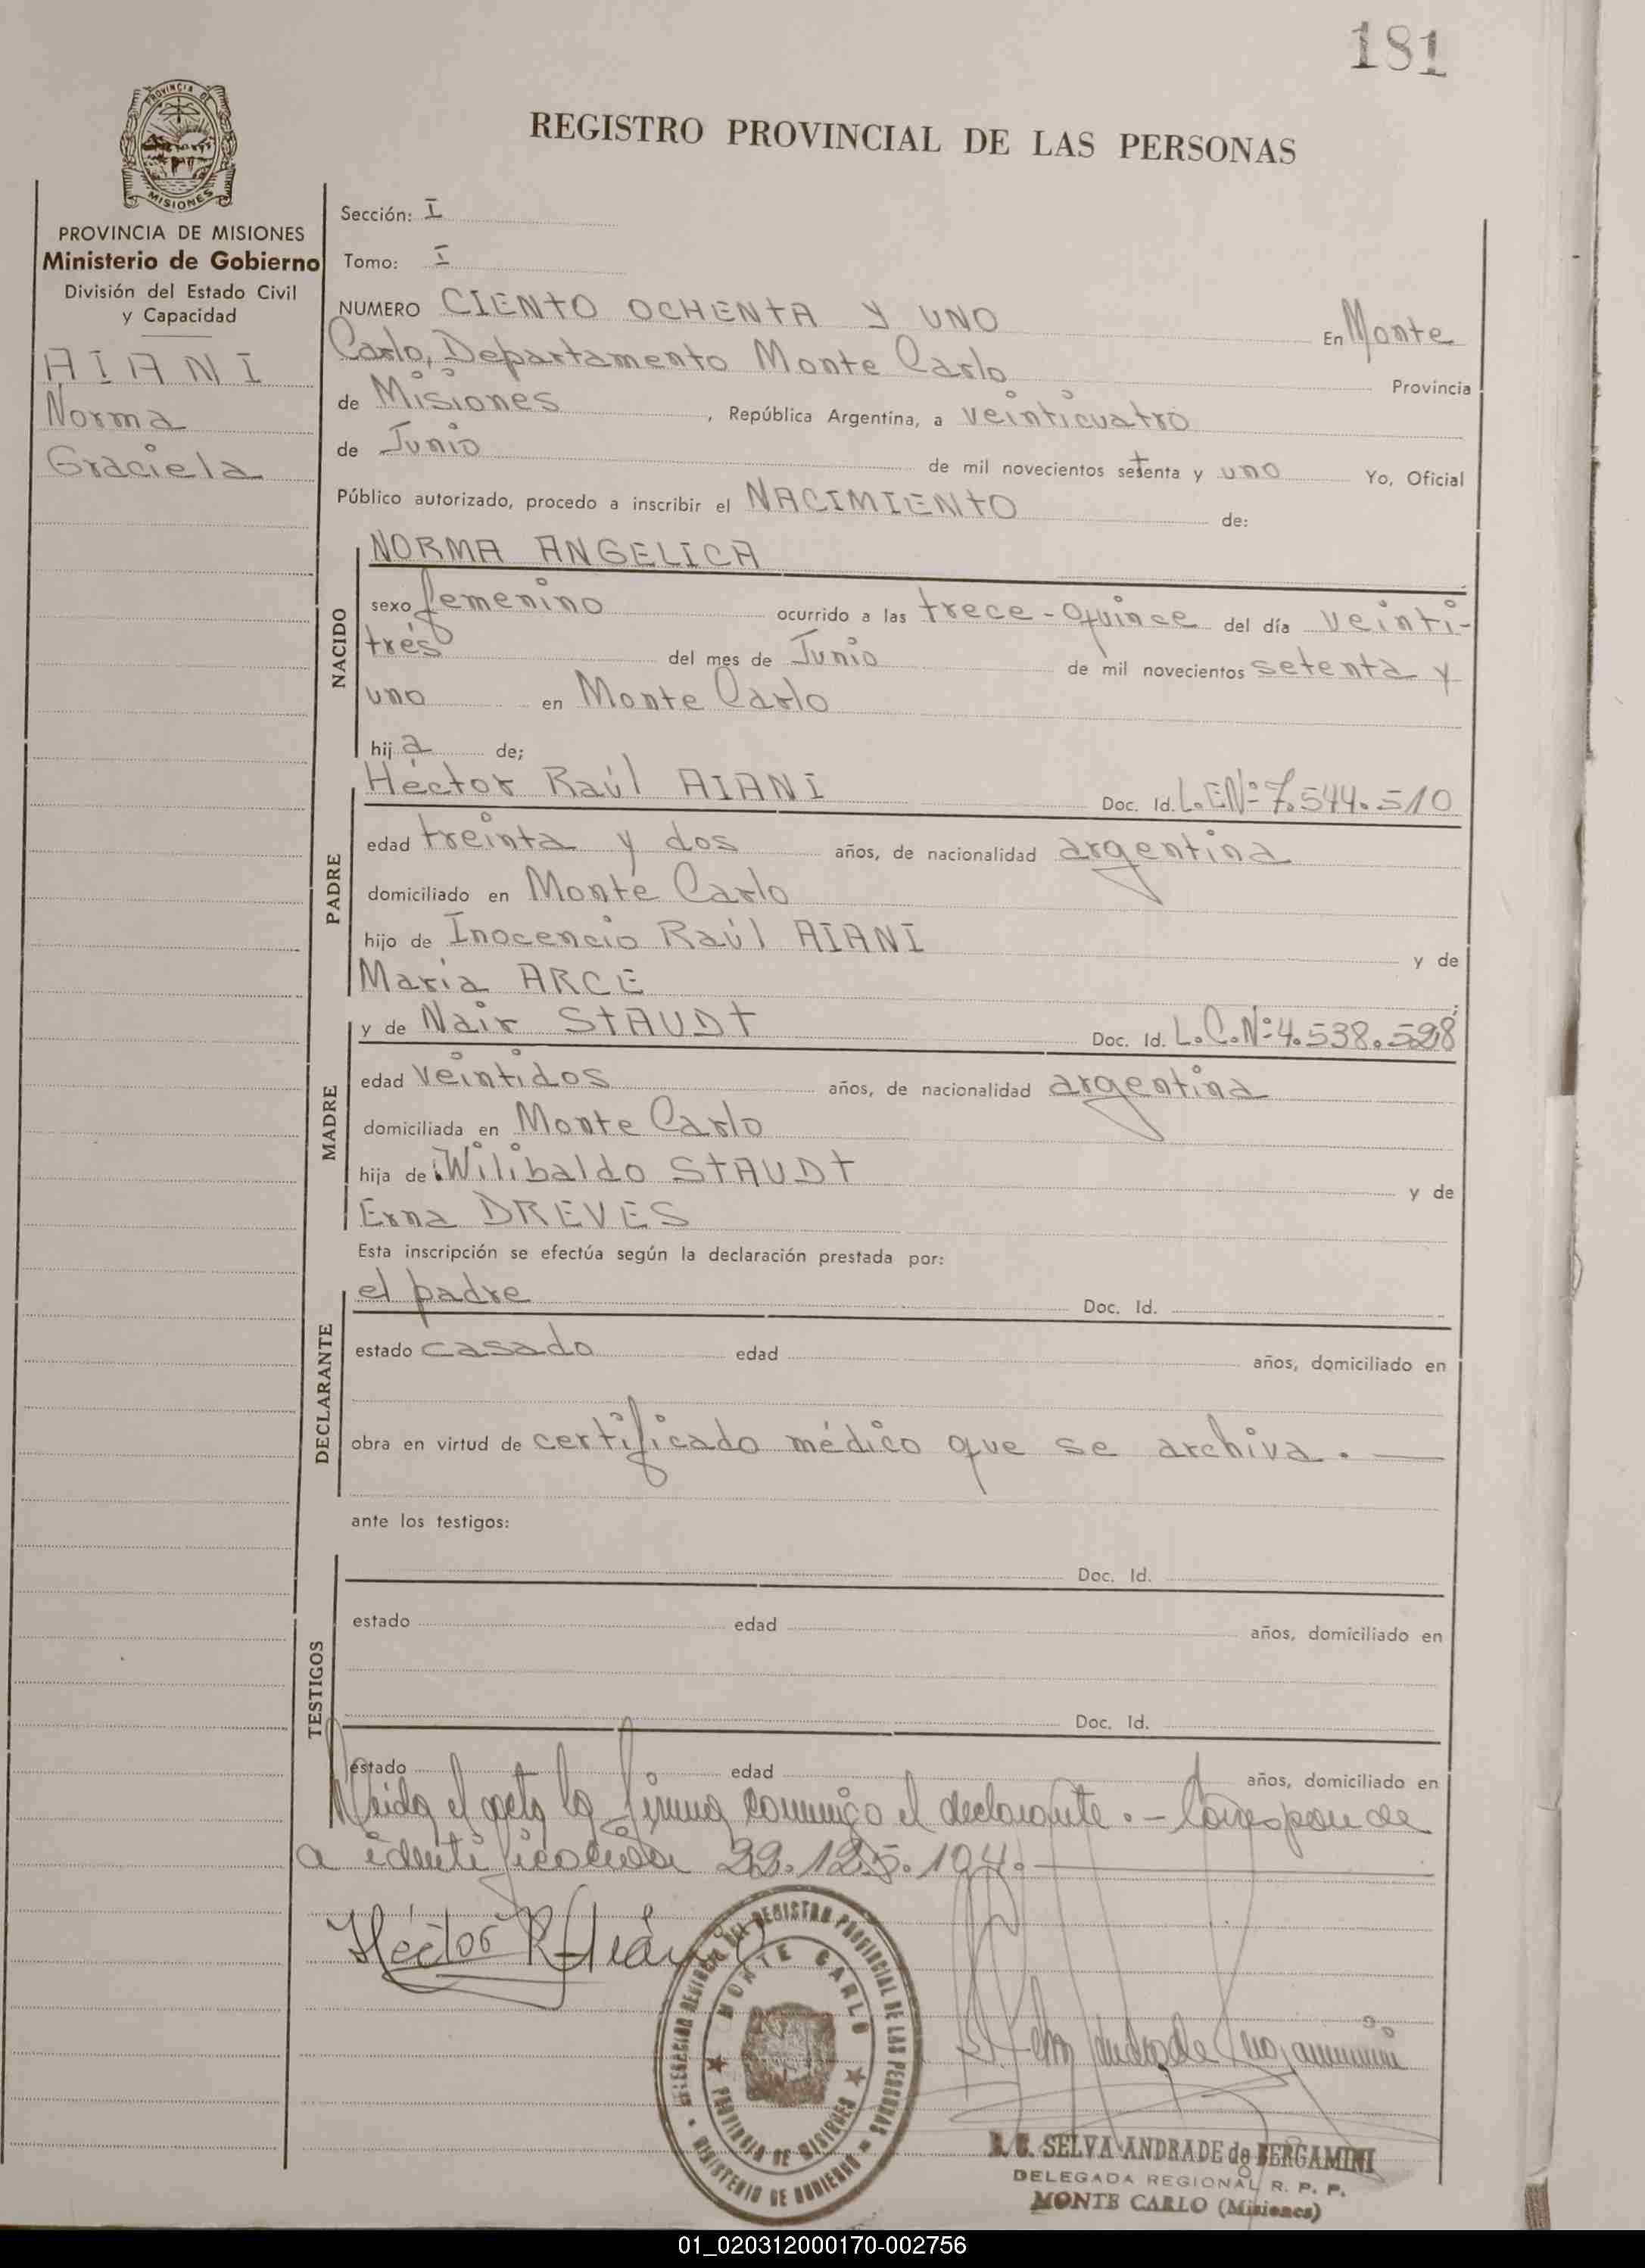 181
REGISTRO PROVINCIAL DE LAS PERSONAS
PROVINCIA DE MISIONES
Ministerio de Gobierno
División del Estado Civil
y Capacidad
AIANI
Norma
Graciela
Sección: I
Tomo: I
NUMERO CIENTO OCHENTA Y UNO En Monte
Carlo, Departamento Monte Carlo Provincia
de Misiones, República Argentina, a veinticuatro
de Junio de mil novecientos setenta y uno Yo, Oficial
Público autorizado, procedo a inscribir el NACIMIENTO de:
NACIDO
NORMA ANGELICA
sexo femenino ocurrido a las trece-quince del día veinti-
trés del mes de Junio de mil novecientos setenta y
uno en Monte Carlo
hija de;
PADRE
Héctor Raúl AIANI Doc. Id. L.E.Nº 7.544.510
edad treinta y dos años, de nacionalidad argentina
domiciliado en Monte Carlo
hijo de Inocencio Raúl AIANI y de
María ARCE
MADRE
y de Nair STAUDT Doc. Id. L.C.Nº 4.538.528
edad veintidos años, de nacionalidad argentina
domiciliada en Monte Carlo
hija de Wilibaldo STAUDT y de
Erna DREVES
Esta inscripción se efectúa según la declaración prestada por:
DECLARANTE
el padre Doc. Id.
estado casado edad años, domiciliado en
obra en virtud de certificado médico que se archiva. —
ante los testigos:
TESTIGOS
Doc. Id.
estado edad años, domiciliado en
Doc. Id.
estado edad años, domiciliado en
Leida el acta la firma conmigo el declarante.- Corresponde
a identificación 22.125.194.
Héctor R. Aiani
DELEGACION REGIONAL DEL REGISTRO PROVINCIAL DE LAS PERSONAS
MINISTERIO DE GOBIERNO
MONTE CARLO
PROVINCIA DE MISIONES
SELVA ANDRADE de BERGAMINI
DELEGADA REGIONAL R. P. P.
MONTE CARLO (Misiones)
01_020312000170-002756